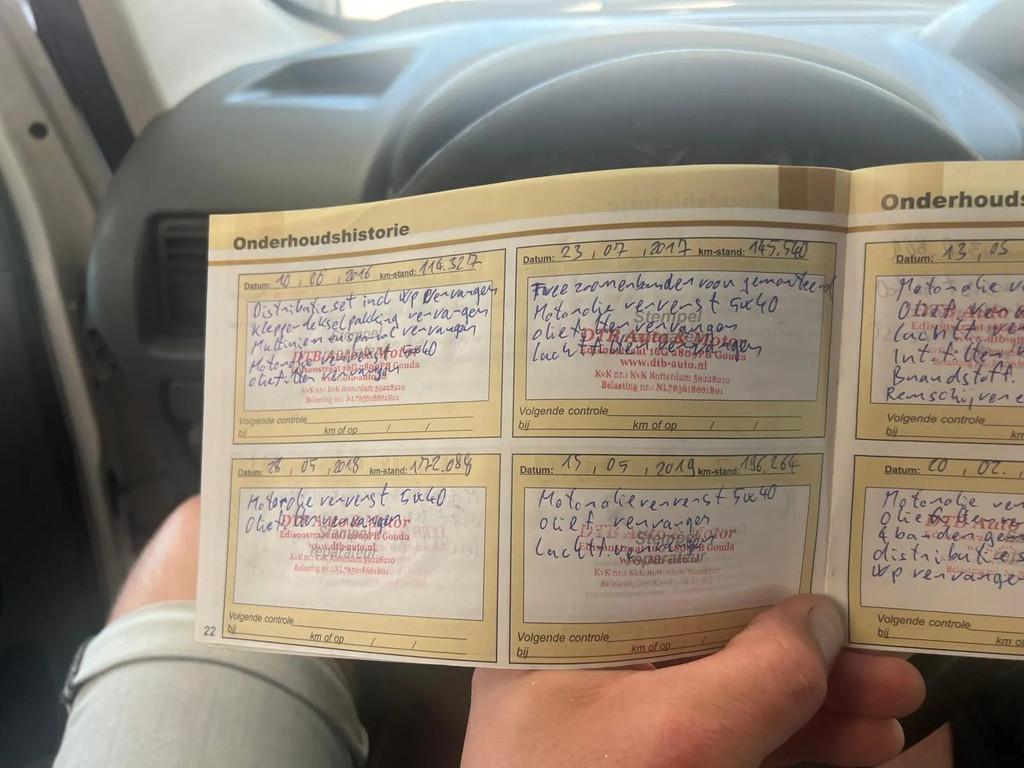 Onderhoudshistorie
Datum: 10, 06, 2016 km-stand: 114.327
Distributieset incl wp vervangen
Kleppendekselpakking vervangen
Multiriem en vervangen
Motorolie ververst 5w40
Oliefilter vervangen
DTB Auto & Motor
Edisonstraat 16G 2809PB Gouda
www.dtb-auto.nl
KvK nr.: KvK Rotterdam 59228210
Belasting nr.: NL783618661B01
Volgende controle
bij km of op / /
Datum: 23, 07, 2017 km-stand: 145.540
Twee zomerbanden voor gemonteerd
Motorolie ververst 5w40
Oliefilter vervangen
Luchtfilter vervangen
Stempel
DTB Auto & Motor
Edisonstraat 16G 2809PB Gouda
www.dtb-auto.nl
KvK nr.: KvK Rotterdam 59228210
Belasting nr.: NL783618661B01
Volgende controle
bij km of op / /
Datum: 28, 05, 2018 km-stand: 172.084
Motorolie ververst 5w40
Oliefilter vervangen
DTB Auto & Motor
Edisonstraat 16G 2809PB Gouda
www.dtb-auto.nl
reparateur
KvK nr.: KvK Rotterdam 59228210
Belasting nr.: NL783618661B01
Volgende controle
bij km of op / /
22
Datum: 15, 05, 2019 km-stand: 196.264
Motorolie ververst 5w40
Olief. vervangen
Luchtf. vervangen
DTB Auto & Motor
Stempel
reparateur
KvK nr.: KvK Rotterdam
Volgende controle
bij km of op / /
Onderhouds
Datum: 13, 05
Motorolie
Olief
Luchtf
Int. filter
Brandstoff.
Remschijven
Volgende controle
bij km
Datum: 20, 02,
Motorolie
Oliefilter
4 banden
distributies
wp vervangen
DTB Auto
Volgende controle
bij km o